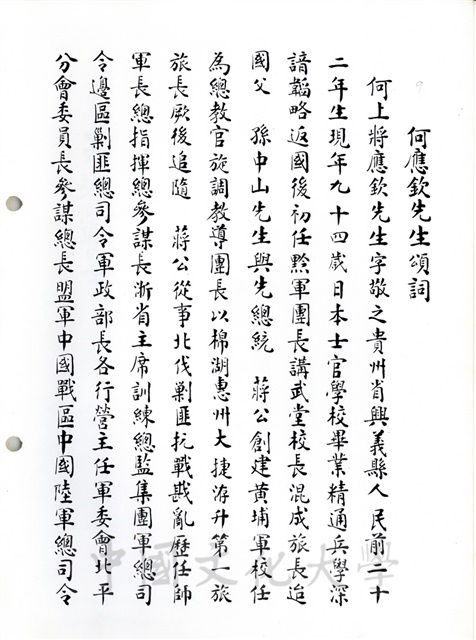 何應欽先生頌詞
何上將應欽先生字敬之貴州省興義縣人民前二十
二年生現年九十四歲日本士官學校畢業精通兵學深
諳韜略返國後初任黔軍團長講武堂校長混成旅長迨
國父　孫中山先生與先總統　蔣公創建黃埔軍校任
為總教官旋調教導團長以棉湖惠州大捷游升第一旅
旅長厥後追隨　蔣公從事北伐剿匪抗戰戡亂歷任師
軍長總指揮總參謀長浙省主席訓練總監集團軍總司
令邊區剿匪總司令軍政部長各行營主任軍委會北平
分會委員長參謀總長盟軍中國戰區中國陸軍總司令
中國文化大學